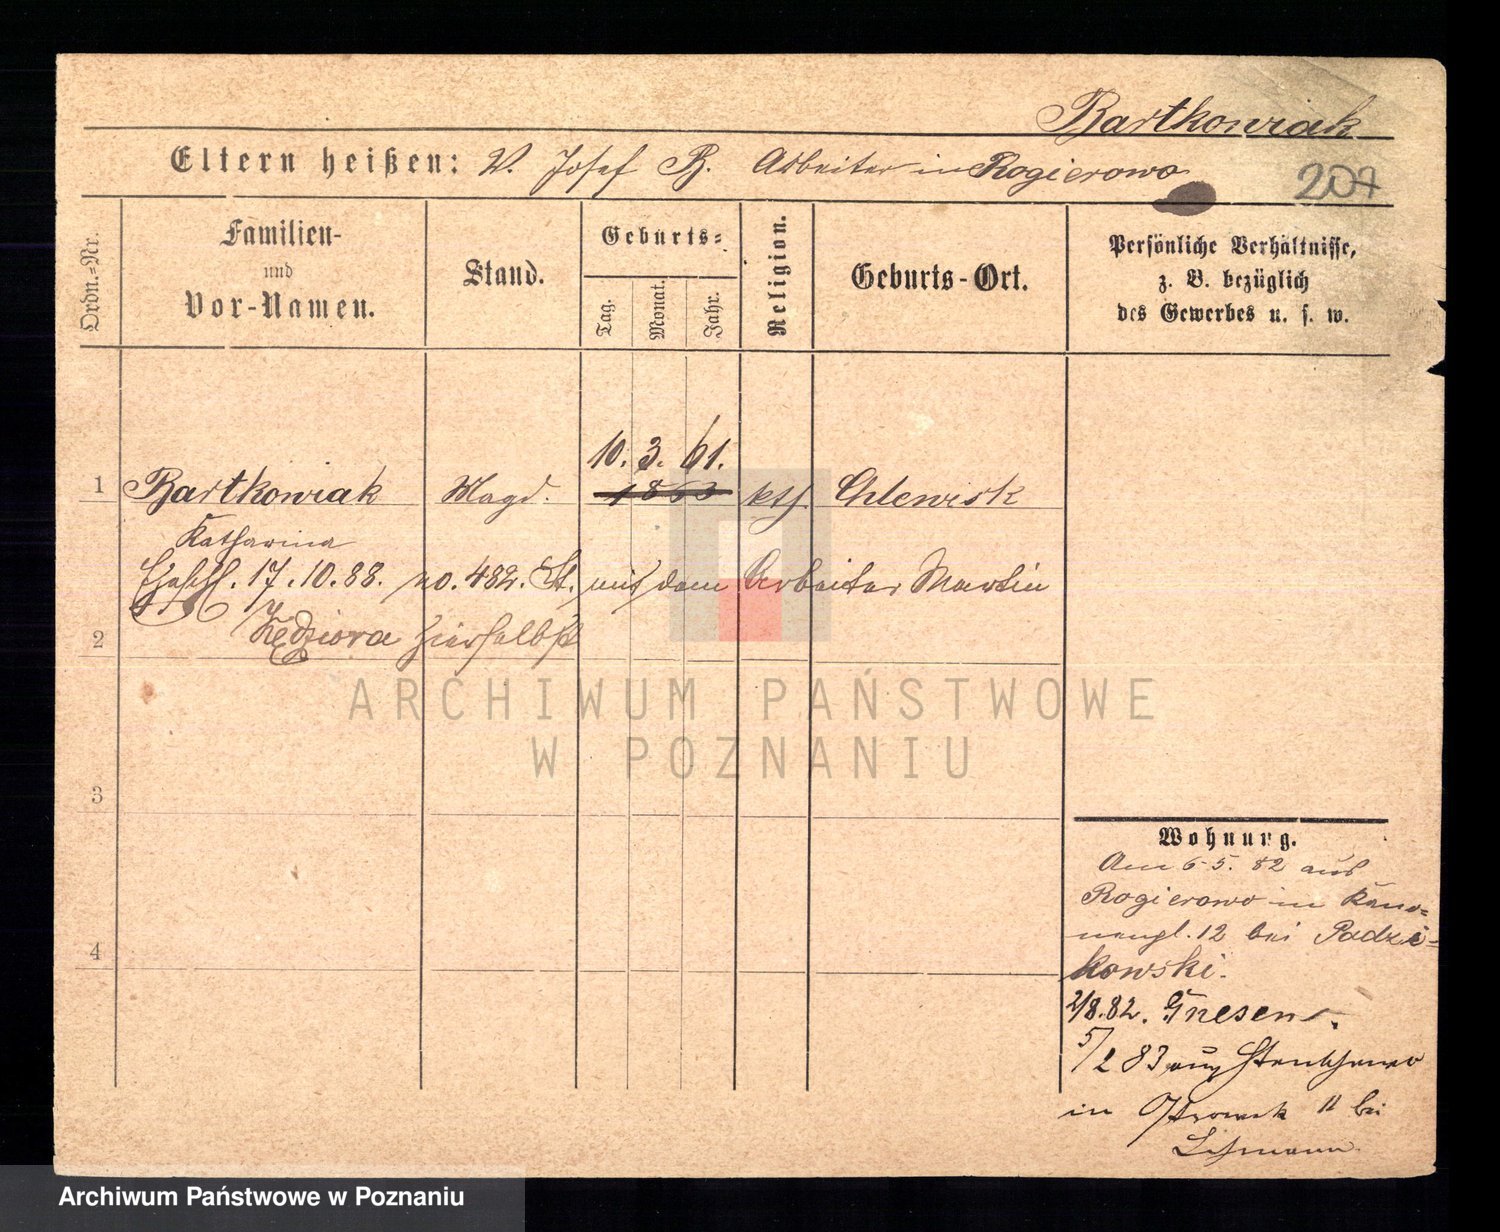 Bartkowiak
Eltern heißen: V. Josef B. Arbeiter in Rogierowo
207
Ordn.=Nr.
Familien- und Vor-Namen.
Stand.
Geburts=
Tag.
Monat.
Jahr.
Religion.
Geburts-Ort.
Persönliche Verhältnisse,
z. B. bezüglich
des Gewerbes u. s. w.
10. 3. 61.
1 Bartkowiak Magd. 1863 kth. Chlewisk
Katharina
Ehschl. 17.10.88. no. 482. St. mit dem Arbeiter Martin
2 Kędziora hierselbst
3
4
Wohnung.
Am 6.5.82 aus
Rogierowo in Kano=
nenpl. 12 bei Padzi=
kowski.
2/8.82. Gnesen.
5/2 83 aus
in Ostrowek 11 bei
ARCHIWUM PAŃSTWOWE
W POZNANIU
Archiwum Państwowe w Poznaniu